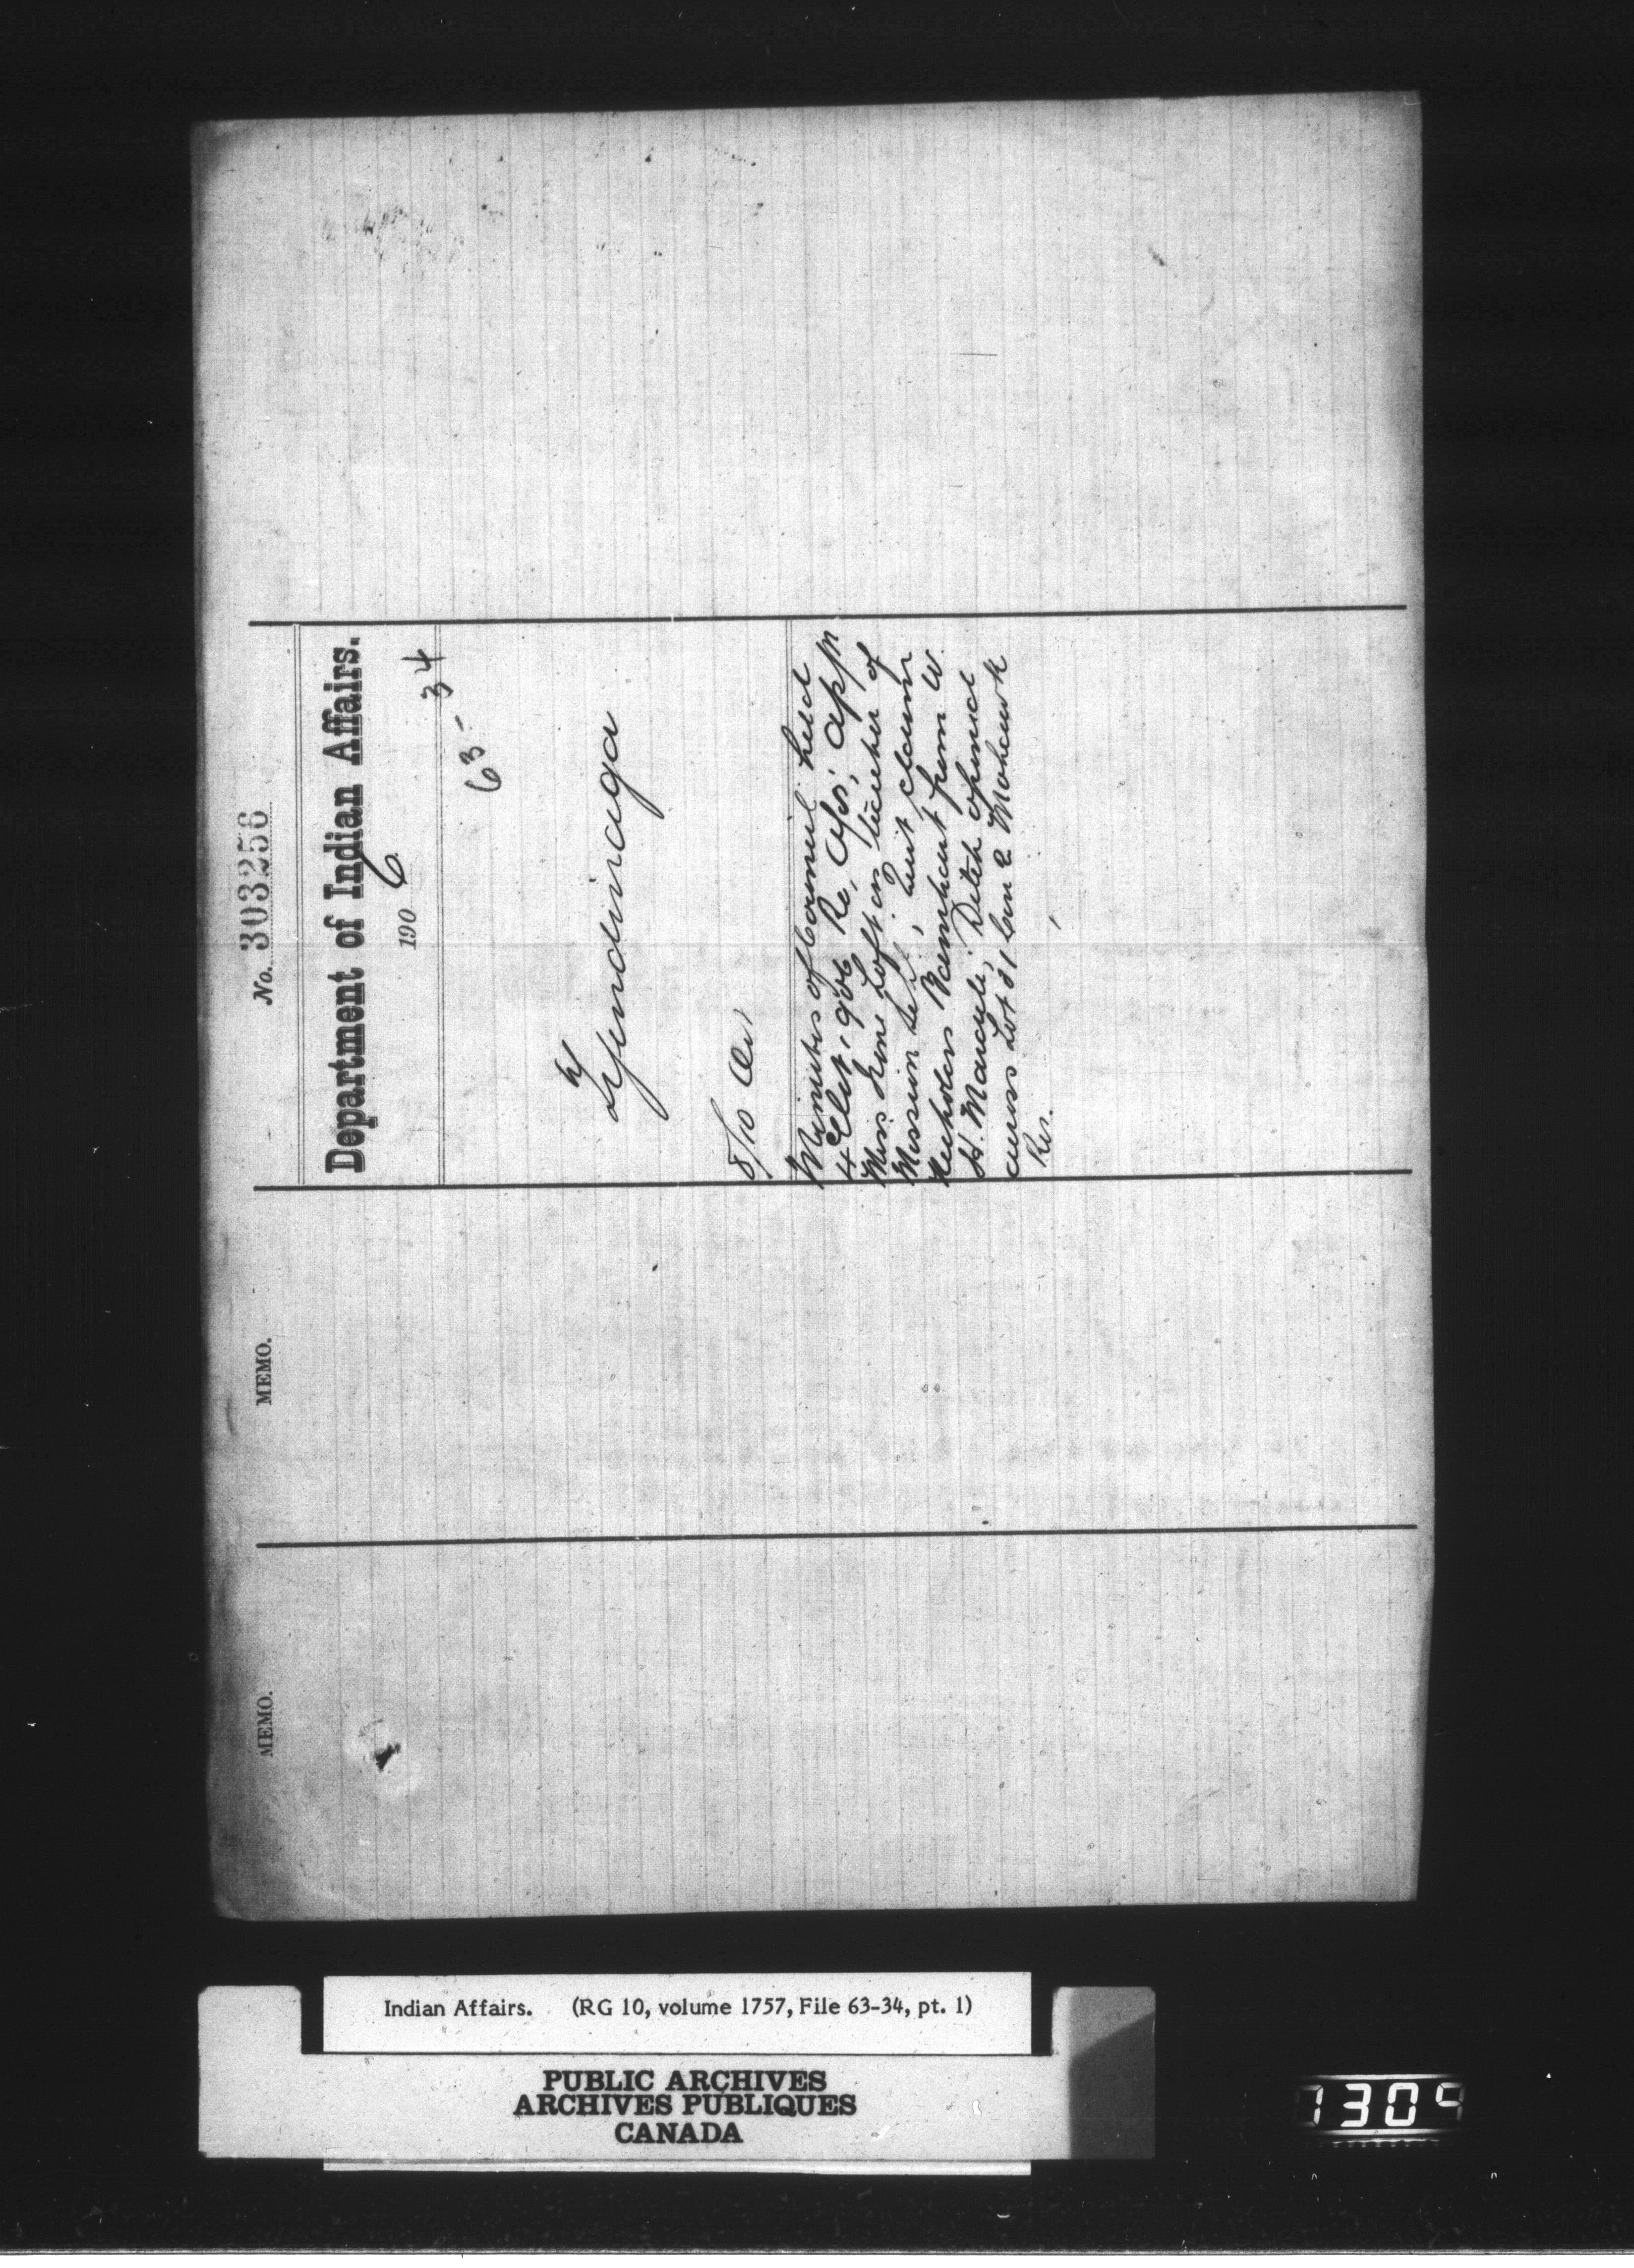 No. 303256
Department of Indian Affairs.
1906
63-34
Tyendinaga
8/10
Minutes of Council held
4 Oct, 906 Re, appn
Miss June Loft as teacher of
Mission ; Quit claim
from W.
H. Maracle; Ditch opened
across Lot 31 Con 2 Mohawk
Res.
MEMO.
MEMO.
Indian Affairs. (RG 10, volume 1757, File 63-34, pt. 1)
PUBLIC ARCHIVES
ARCHIVES PUBLIQUES
CANADA
1309